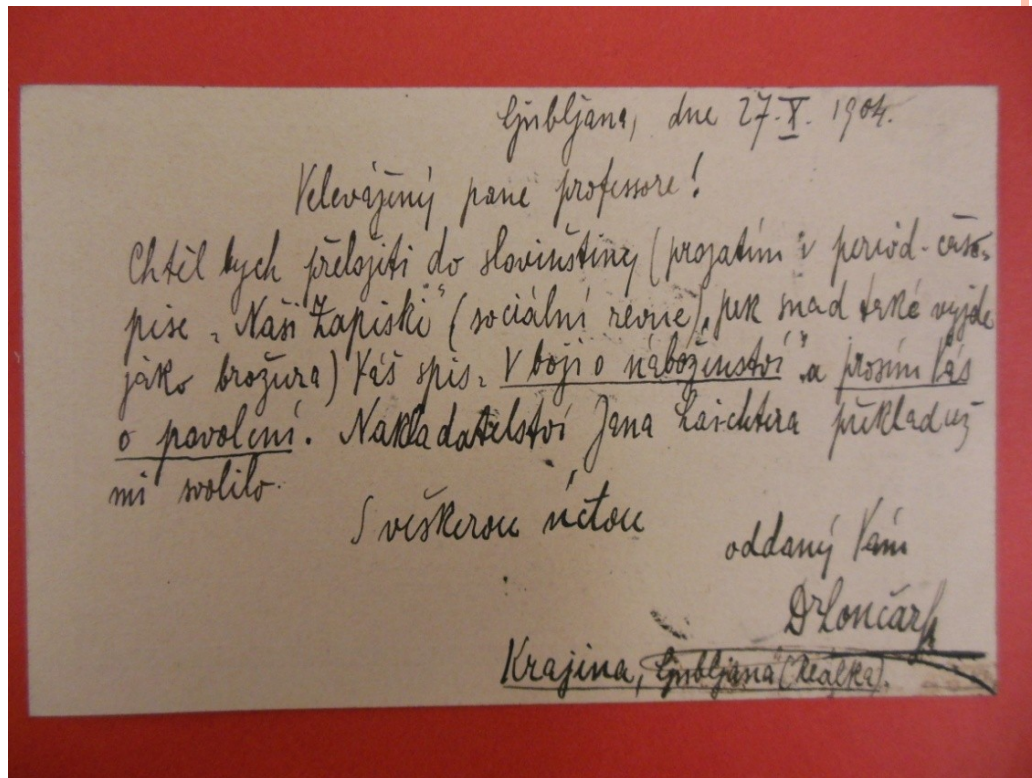 Ljubljana, dne 27.X. 1904.
Velevážený pane professore!
Chtěl bych přeložiti do slovinštiny (prozatím v period. časo-
pise „Naši Zapiski“ (sociální revue), pak snad také vyjde
jako brožura) Váš spis „V boji o náboženství“ a prosím Vás
o povolení. Nakladatelství Jana Laichtera překlad už
mi svolilo.
S veškerou úctou
oddaný Vám
Dr Lončar
Krajina, Ljubljana (Realka).